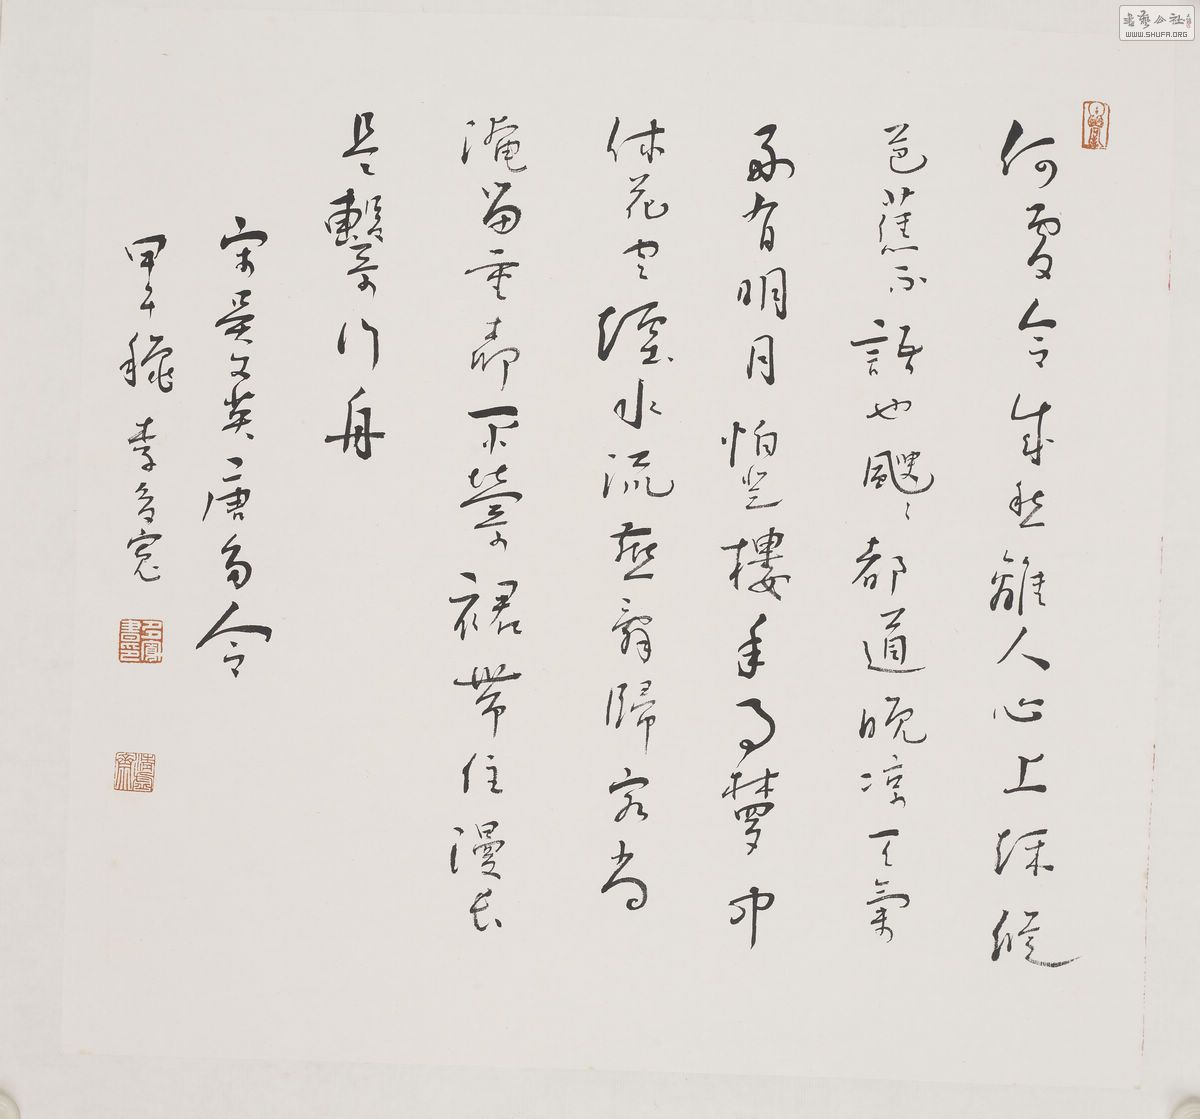 何處合成愁離人心上秋縱
芭蕉不語也颼〻都道晚凉天氣
好有明月怕登樓年事夢中
休花空煙水流燕辭歸客尚
淹留垂柳不縈裙帶住漫長
是繫行舟
宋吳文英唐多令
甲午穐 李多寬
書藝公社
WWW.SHUFA.ORG